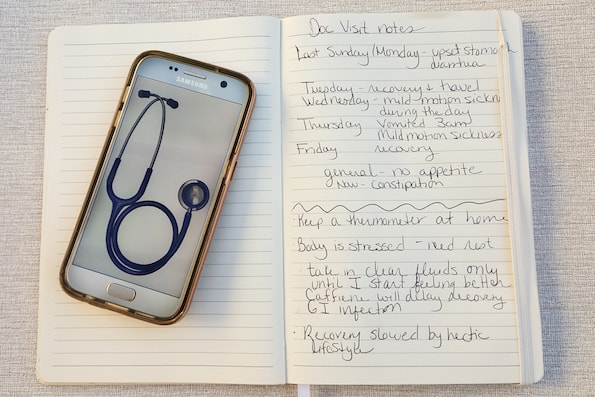 SAMSUNG
Doc Visit notes
Last Sunday/Monday - upset stomach
diarrhia
Tuesday - recovery + travel
Wednesday - mild motion sickness
during the day
Thursday Vomited 3am
Mild motion sickness
Friday recovery
general - no appetite
Now - Constipation
Keep a thermometer at home
Body is stressed - need rest
· take in clear fluids only
until I start feeling better
Caffeine will delay recovery
GI infection
· Recovery slowed by hectic
lifestyle